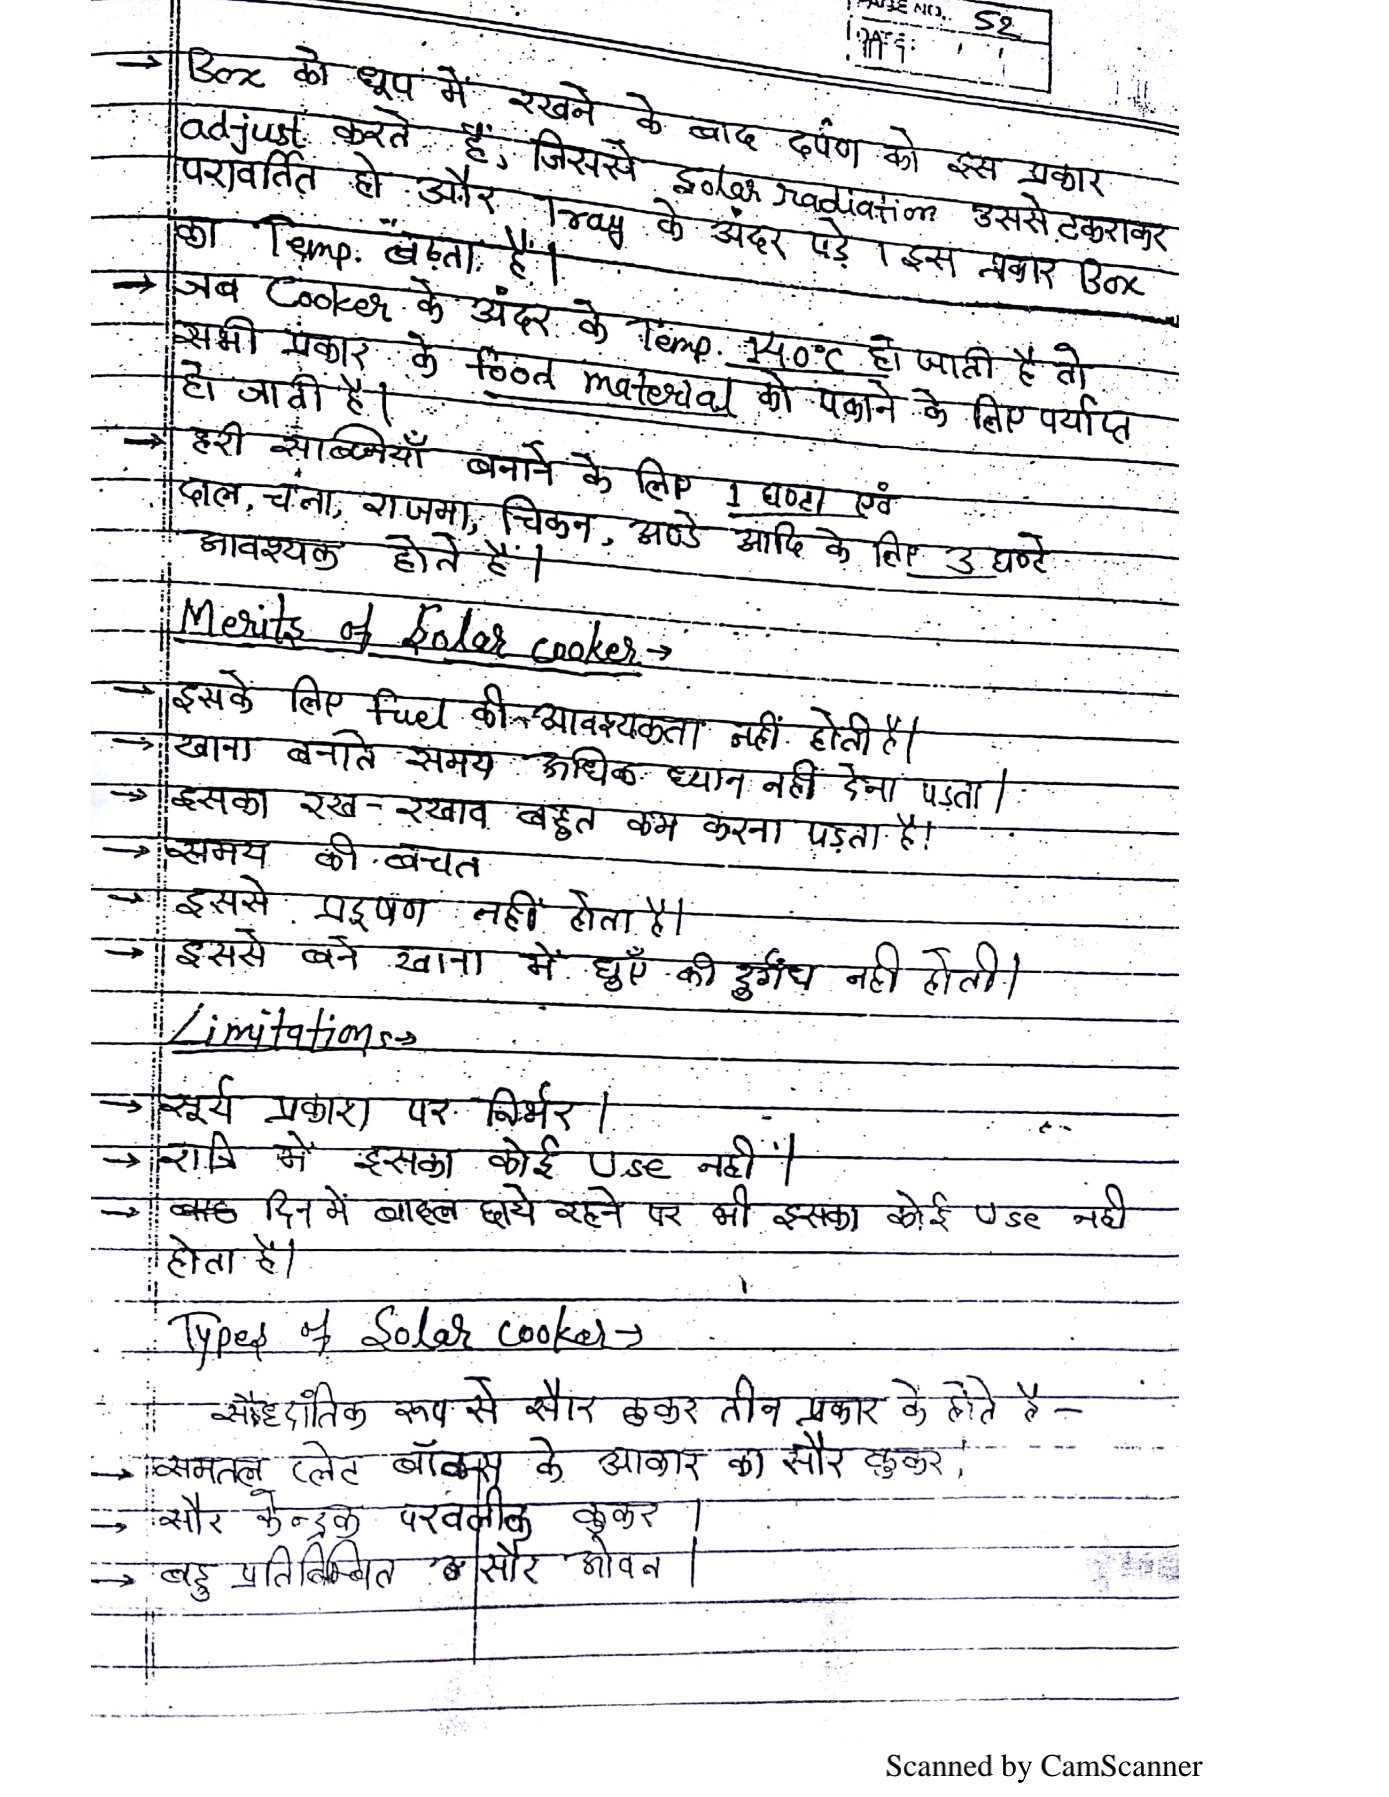 PAGE NO. 52
DATE:
→ Box को धूप में रखने के बाद दर्पण को इस प्रकार
adjust करते हैं, जिससे Solar radiation उससे टकराकर
परावर्तित हो और Tray के अंदर पड़े । इस प्रकार Box
का Temp. बढ़ता है।
→ जब Cooker के अंदर के Temp. 140°C हो जाती है तो
सभी प्रकार के food material को पकाने के लिए पर्याप्त
हो जाती है।
→ हरी सब्जियाँ बनाने के लिए 1 घण्टा एवं
दाल, चना, राजमा, चिकन, अण्डे आदि के लिए 3 घण्टे
आवश्यक होते हैं।
Merits of Solar cooker →
→ इसके लिए fuel की आवश्यकता नहीं होती है।
→ खाना बनाते समय अधिक ध्यान नहीं देना पड़ता।
→ इसका रख-रखाव बहुत कम करना पड़ता है।
→ समय की बचत
→ इससे प्रदूषण नहीं होता है।
→ इससे बने खाना में धुएँ की दुर्गंध नही होती।
Limitations →
→ सूर्य प्रकाश पर निर्भर।
→ रात्रि में इसका कोई Use नही।
→ दिन में बादल छाये रहने पर भी इसका कोई Use नही
होता है।
Types of Solar cooker →
सौद्दांतिक रूप से सौर कुकर तीन प्रकार के होते है -
→ समतल प्लेट बॉक्स के आकार का सौर कुकर।
→ सौर केन्द्रक परवलीक कुकर ।
→ बहु प्रतिबिम्बित सौर ओवन ।
Scanned by CamScanner